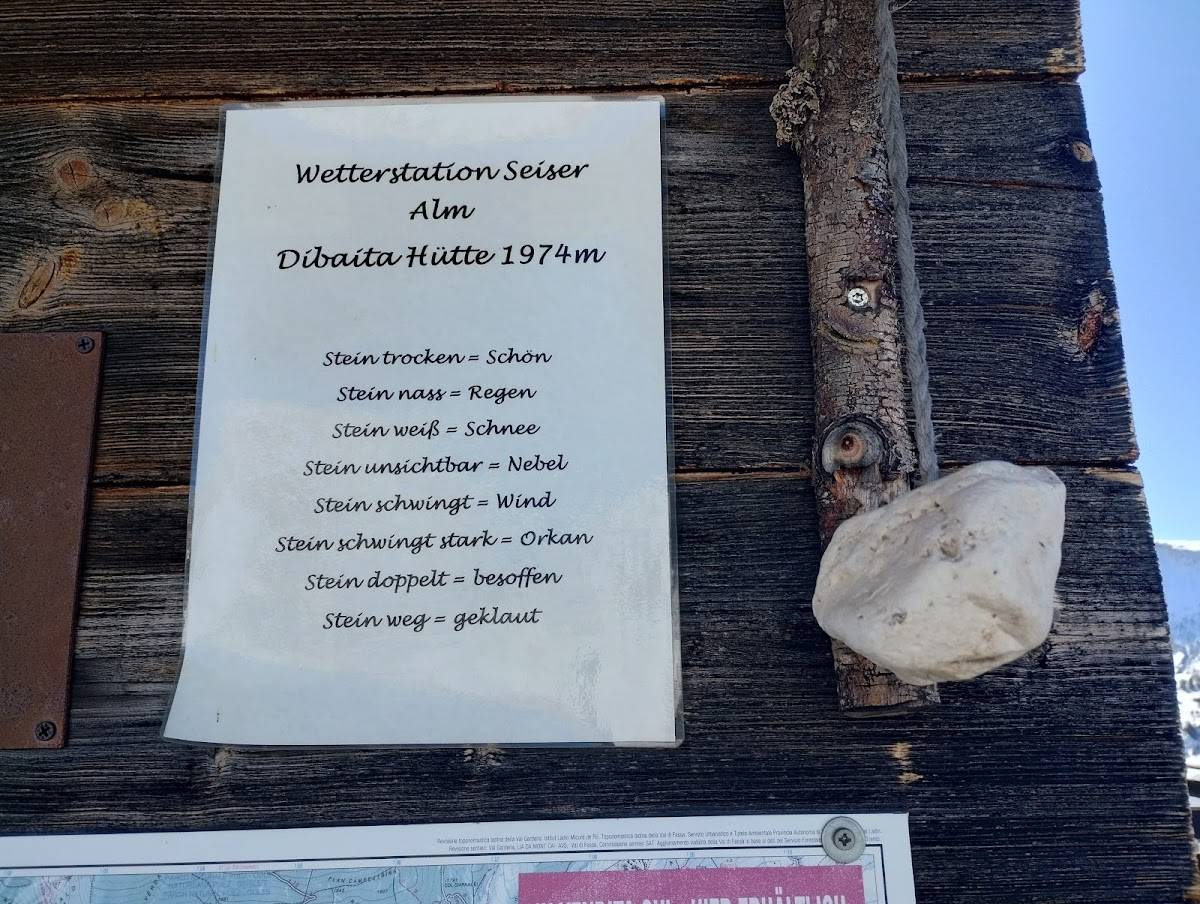 Wetterstation Seiser
Alm
Dibaita Hütte 1974m
Stein trocken = Schön
Stein nass = Regen
Stein weiß = Schnee
Stein unsichtbar = Nebel
Stein schwingt = Wind
Stein schwingt stark = Orkan
Stein doppelt = besoffen
Stein weg = geklaut